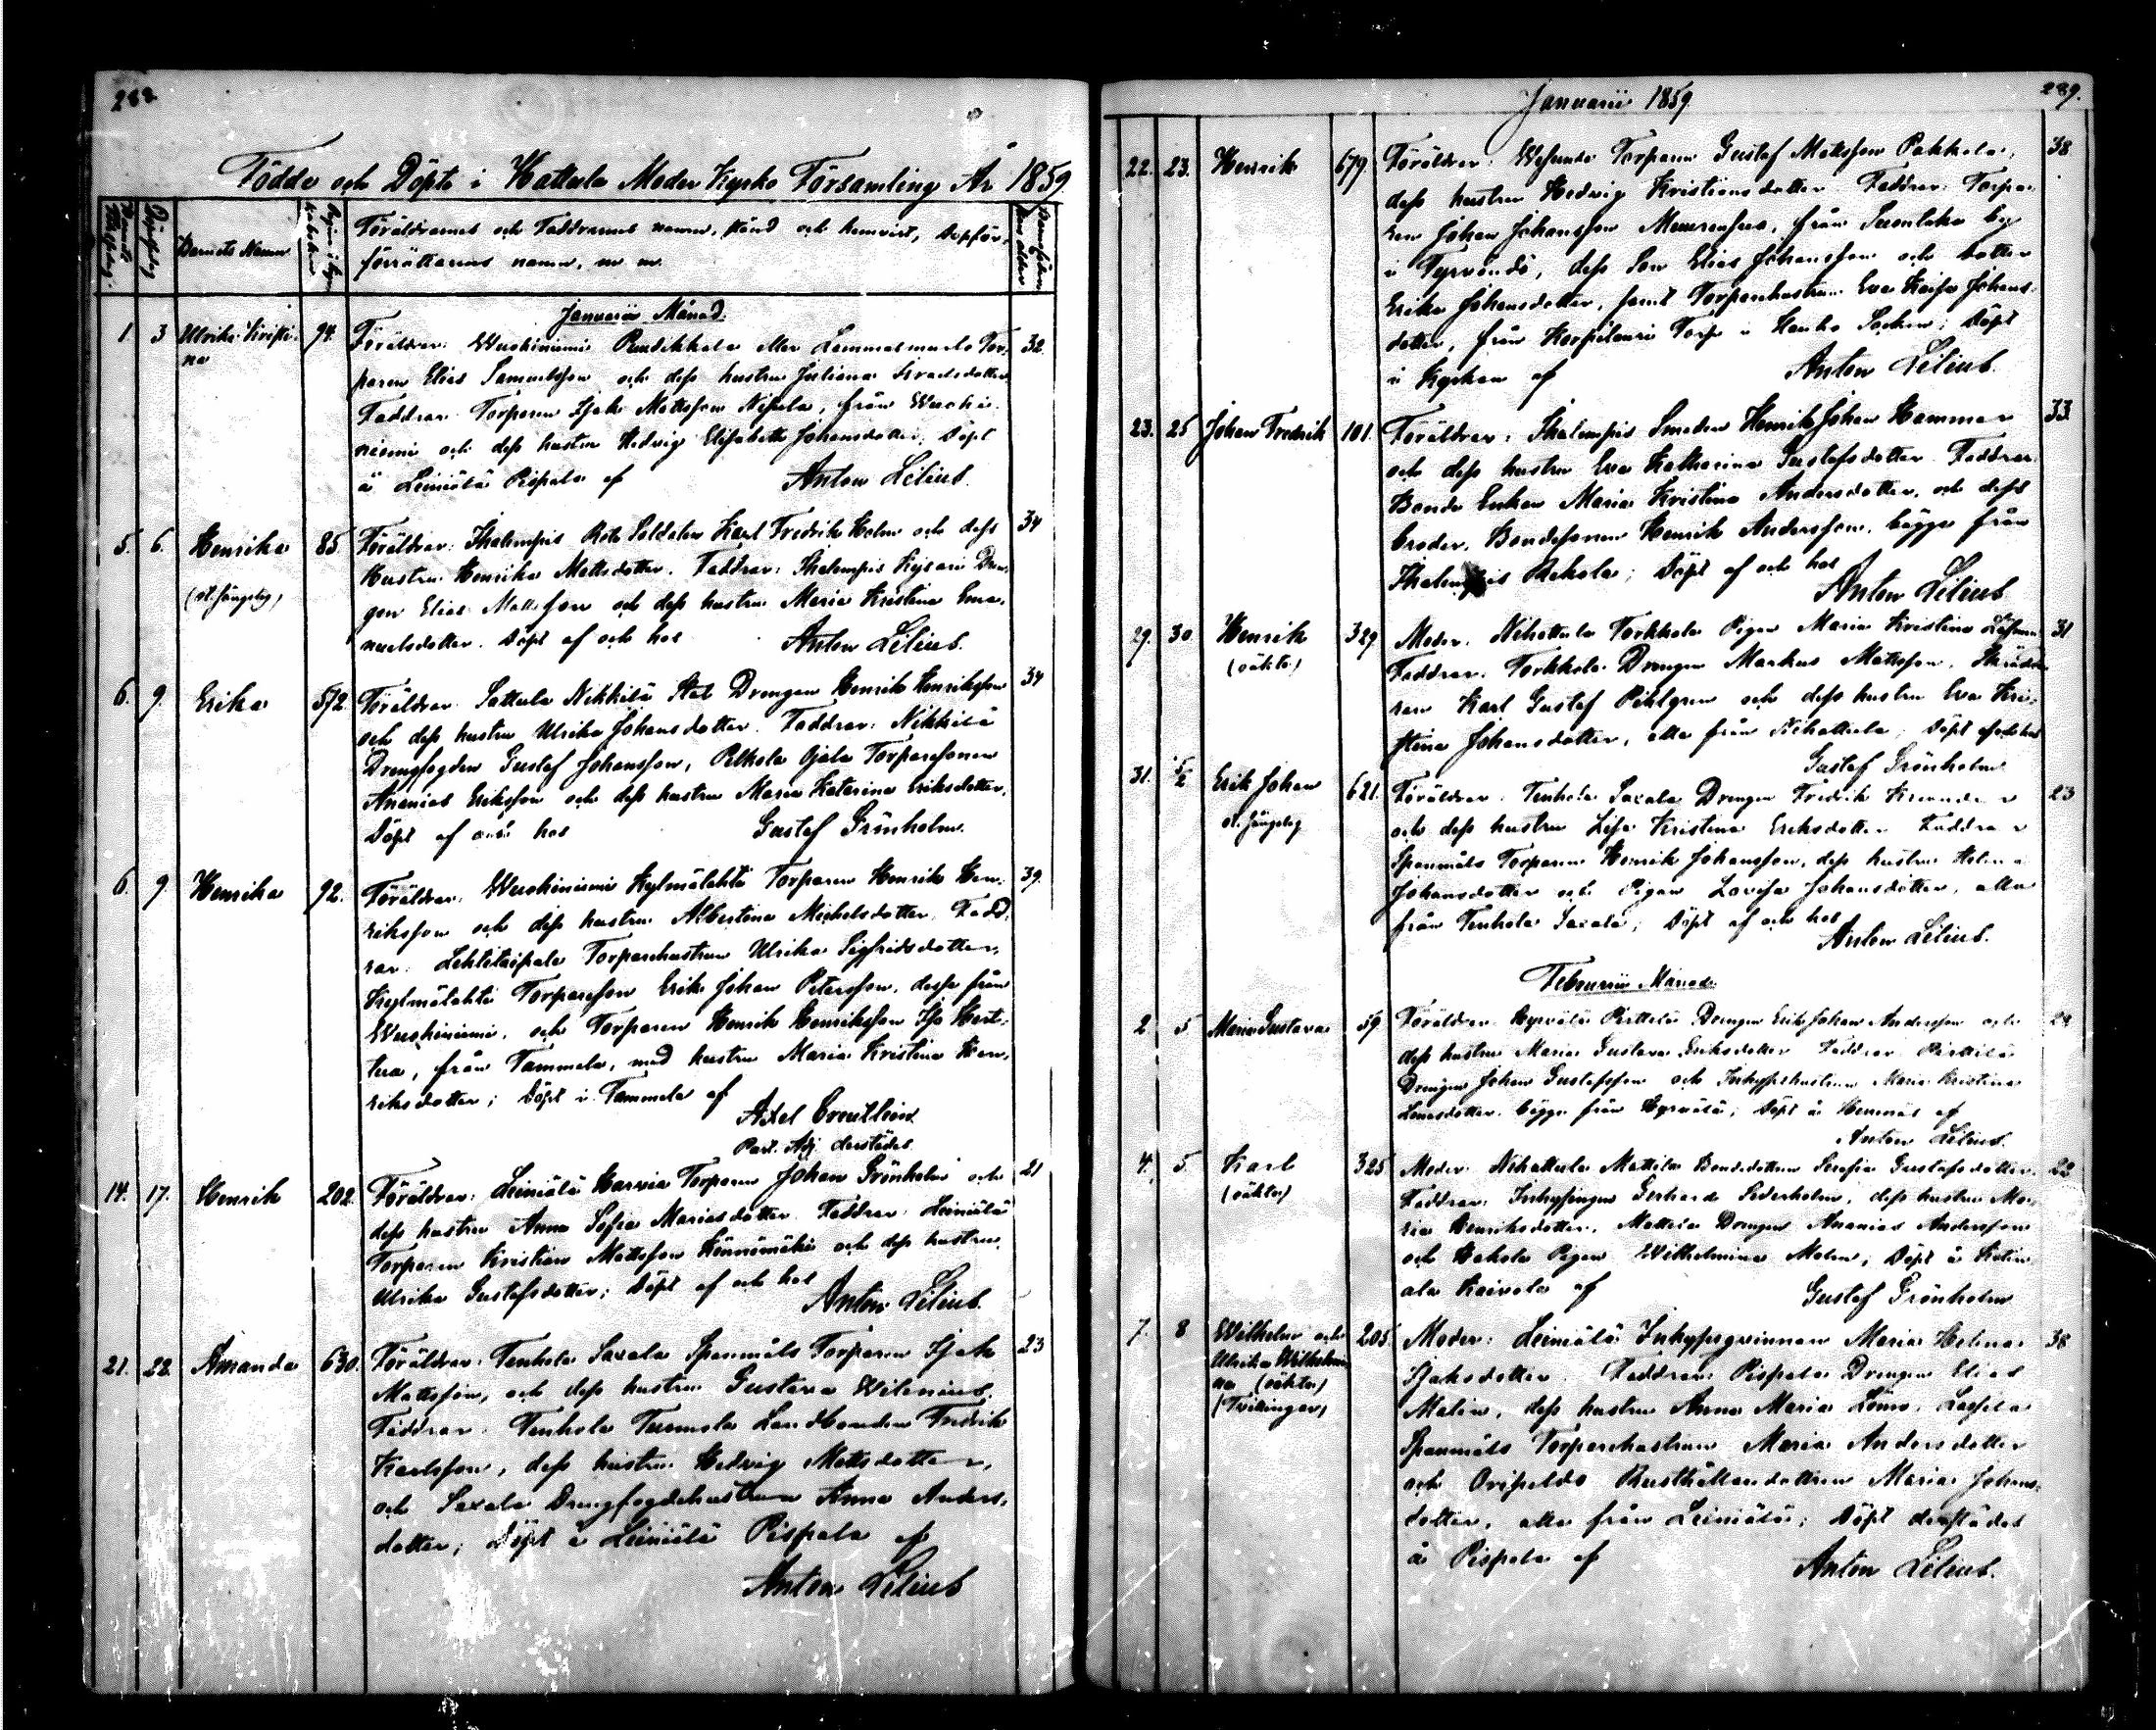 288
Födde och Döpte i Hattula Moder Kyrko Församling År 1859.
Barnets Namn
Föräldrarnes och Faddrarnes namn, stånd och hemvist, Döpför-
förrättarens namn, m. m.
Januarii Månad.
1. 3 Ulrika Kristi- 94. Föräldrar: Wuohiniemi eller Lammasmäki Tor- 32.
na paren Elias Samuelsson och dess hustru Juliana Israelsdotter
Faddrar: Torparen Isak Mattsson Nipula, från Wuohi-
niemi och dess hustru Hedvig Elisabeth Johansdotter. Döpt
å Leiniälä Pispala af Anton Lilius.
5. 6. Henrika 85. Föräldrar: Ihalempis Rote Soldaten Karl Fredrik Holm och dess 34
Hustru Henrika Mattsdotter. Faddrar: Ihalempis Dren-
gen Elias Mattsson och dess hustru Maria Kristina Ema-
nuelsdotter. Döpt af och hos Anton Lilius.
6. 9. Erika 572. Föräldrar: Sattula Nikkilä Stat Drengen Henrik Henriksson 34
och dess hustru Ulrika Johansdotter. Faddrar: Nikkilä
Drengfogden Gustaf Johansson, Pelkola Ojala Torparesonen
Ananias Eriksson och dess hustru Maria Katarina Eriksdotter.
Döpt af och hos Gustaf Grönholm.
6. 9 Henrika 92. Föräldrar: Wuohiniemi Kylmälahti Torparen Henrik Hen- 39.
riksson och dess hustru Albertina Michelsdotter. Fadd-
rar: Lehtitaipale Torparehustrun Ulrika Sigfridsdotter,
Kylmälahti Torpareson Erik Johan Petersson, desse från
Wuohiniemi, och Torparen Henrik Henriksson Iso Hert-
tua, från Tammela, med hustru Maria Kristina Hen-
riksdotter; Döpt i Tammela af
Axel Creutlein
Past. Adj. derstädes.
14. 17. Henrik 202. Föräldrar: Leiniälä Harvia Torparen Johan Grönholm och 21
dess hustru Anna Sofia Mariasdotter. Faddrar: Leiniälä
Torparen Kristian Mattsson Kinnämäki och dess hustru
Ulrika Gustafsdotter; Döpt af och hos Anton Lilius.
21. 22. Amanda 630. Föräldrar: Tenhola Saxala Spanmåls Torparen Isak 23
Mattsson, och dess hustru Gustava Wilenius.
Faddrar: Tenhola Tuomola Landbonden Fredrik
Karlsson, dess hustru Hedvig Mattsdotter,
och Saxala Drengfogdehustrun Anna Anders-
dotter; Döpt å Leiniälä Pispala af
Anton Lilius
Januarii 1859. 289.
22. 23. Henrik 679. Föräldrar: Wesunda Torparen Gustaf Mattsson Pakkala, 38
dess hustru Hedvig Kristiansdotter. Faddrar: Torpa-
ren Johan Johansson från by
i Tyrvändö, dess Son Elias Johansson och dotter
Erika Johansdotter, samt Torparehustrun Eva Kaisa Johans-
dotter, från Torp i Hauho Socken; Döpt
i Kyrkan af Anton Lilius.
23. 25 Johan Fredrik 101. Föräldrar: Ihalempis Smeden Henrik Johan Hammar 33
och dess hustru Eva Katharina Gustafsdotter. Faddrar:
Bonde Enkan Maria Kristina Andersdotter, och dess
broder, Bondesonen Henrik Andersson, bägge från
Ihalempis Rekola; Döpt af och hos
Anton Lilius
29. 30. Henrik 329. Moder: Nihattula Torkkola Pigan Maria Kristina 31
(oäkta) Faddrar: Torkkola Drengen Markus Mattsson, Skrädda-
ren Karl Gustaf Pihlgren och dess hustru Eva Kri-
stina Johansdotter, alla från Nihattula; Döpt af och hos
Gustaf Grönholm
31. 5/2 Erik Johan 621. Föräldrar: Tenhola Saxala Drengen Fredrik 23
och dess hustru Lisa Kristina Eriksdotter. Faddrar
Spanmåls Torparen Henrik Johansson, dess hustru Helena
Johansdotter och Pigan Lovisa Johansdotter, alla
från Tenhola Saxala; Döpt af och hos
Anton Lilius.
Februarii Månad.
2 5 Maria Gustava 59 Föräldrar: Hyrvälä Perttilä Drengen Erik Johan Andersson och
dess hustru Maria Gustava Eriksdotter. Faddrar: Perttilä
Drengen Johan Gustafsson och Inhyseshustrun Maria Kristina
bägge från Hyrvälä; Döpt å af
Anton Lilius.
4. 5. Karl 325 Moder: Nihattula Mattila Bondedottren Serafia Gustafsdotter. 22
(oäkta) Faddrar: Inhysingen Gerhard Sederholm, dess hustru Ma-
ria Henriksdotter, Mattila Drengen Ananias Andersson
och Hakola Pigan Wilhelmina Malm; Döpt å
Kaivola af Gustaf Grönholm
7. 8 Wilhelm och 205. Moder: Leiniälä Inhysesqvinnan Maria Helena 38
Ulrika Wilhelmi- Isaksdotter. Faddrar: Pispala Drengen Elias
na (oäkta) Malin, dess hustru Anna Maria
(Tvillingar) Spanmåls Torparehustrun Maria Andersdotter
och Rusthållaredottren Maria Johans-
dotter, alla från Leiniälä; Döpt derstädes
å Pispala af Anton Lilius.